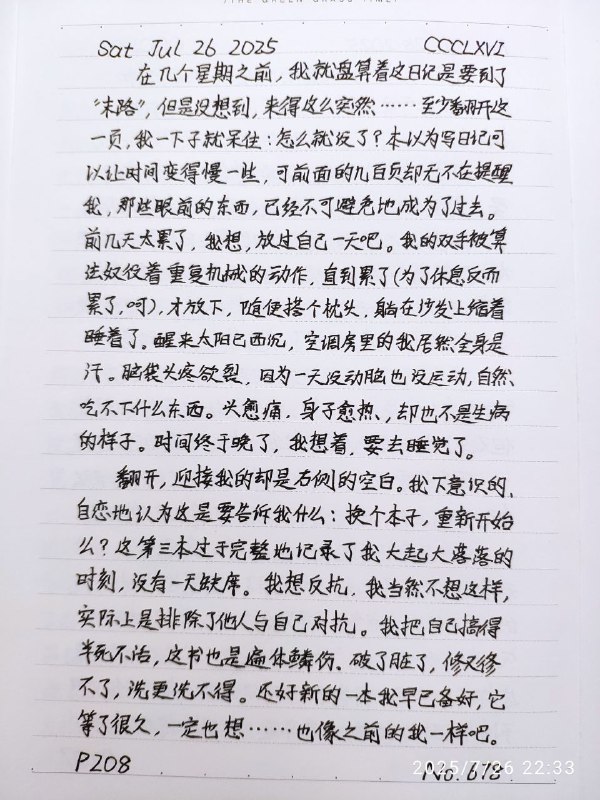 Sat Jul 26 2025 CCCLXVI
在几个星期之前，我就盘算着这日记是要到了
“末路”，但是没想到，来得这么突然……至少翻开这
一页，我一下子就呆住：怎么就没了？本以为写日记可
以让时间变得慢一些，可前面的几百页却无不在提醒
我，那些眼前的东西，已经不可避免地成为了过去。
前几天太累了，我想，放过自己一天吧。我的双手被算
法奴役着重复机械的动作，直到累了(为了休息反而
累了，呵)，才放下，随便搭个枕头，躺在沙发上缩着
睡着了。醒来太阳已西沉，空调房里的我居然全身是
汗。脑袋头疼欲裂，因为一天没动脑也没运动，自然
吃不下什么东西。头愈痛，身子愈热，却也不是生病
的样子。时间终于晚了，我想着，要去睡觉了。
翻开，迎接我的却是右侧的空白。我下意识的、
自恋地认为这是要告诉我什么：换个本子，重新开始
么？这第三本过于完整地记录了我大起大落落的
时刻，没有一天缺席。我想反抗，我当然不想这样，
实际上是排除了他人与自己对抗。我把自己搞得
半死不活，这书也是遍体鳞伤。破了脏了，修又修
不了，洗更洗不得。还好新的一本我早已备好，它
等了很久，一定也想……也像之前的我一样吧。
P208 No. 618
2025/7/26 22:33